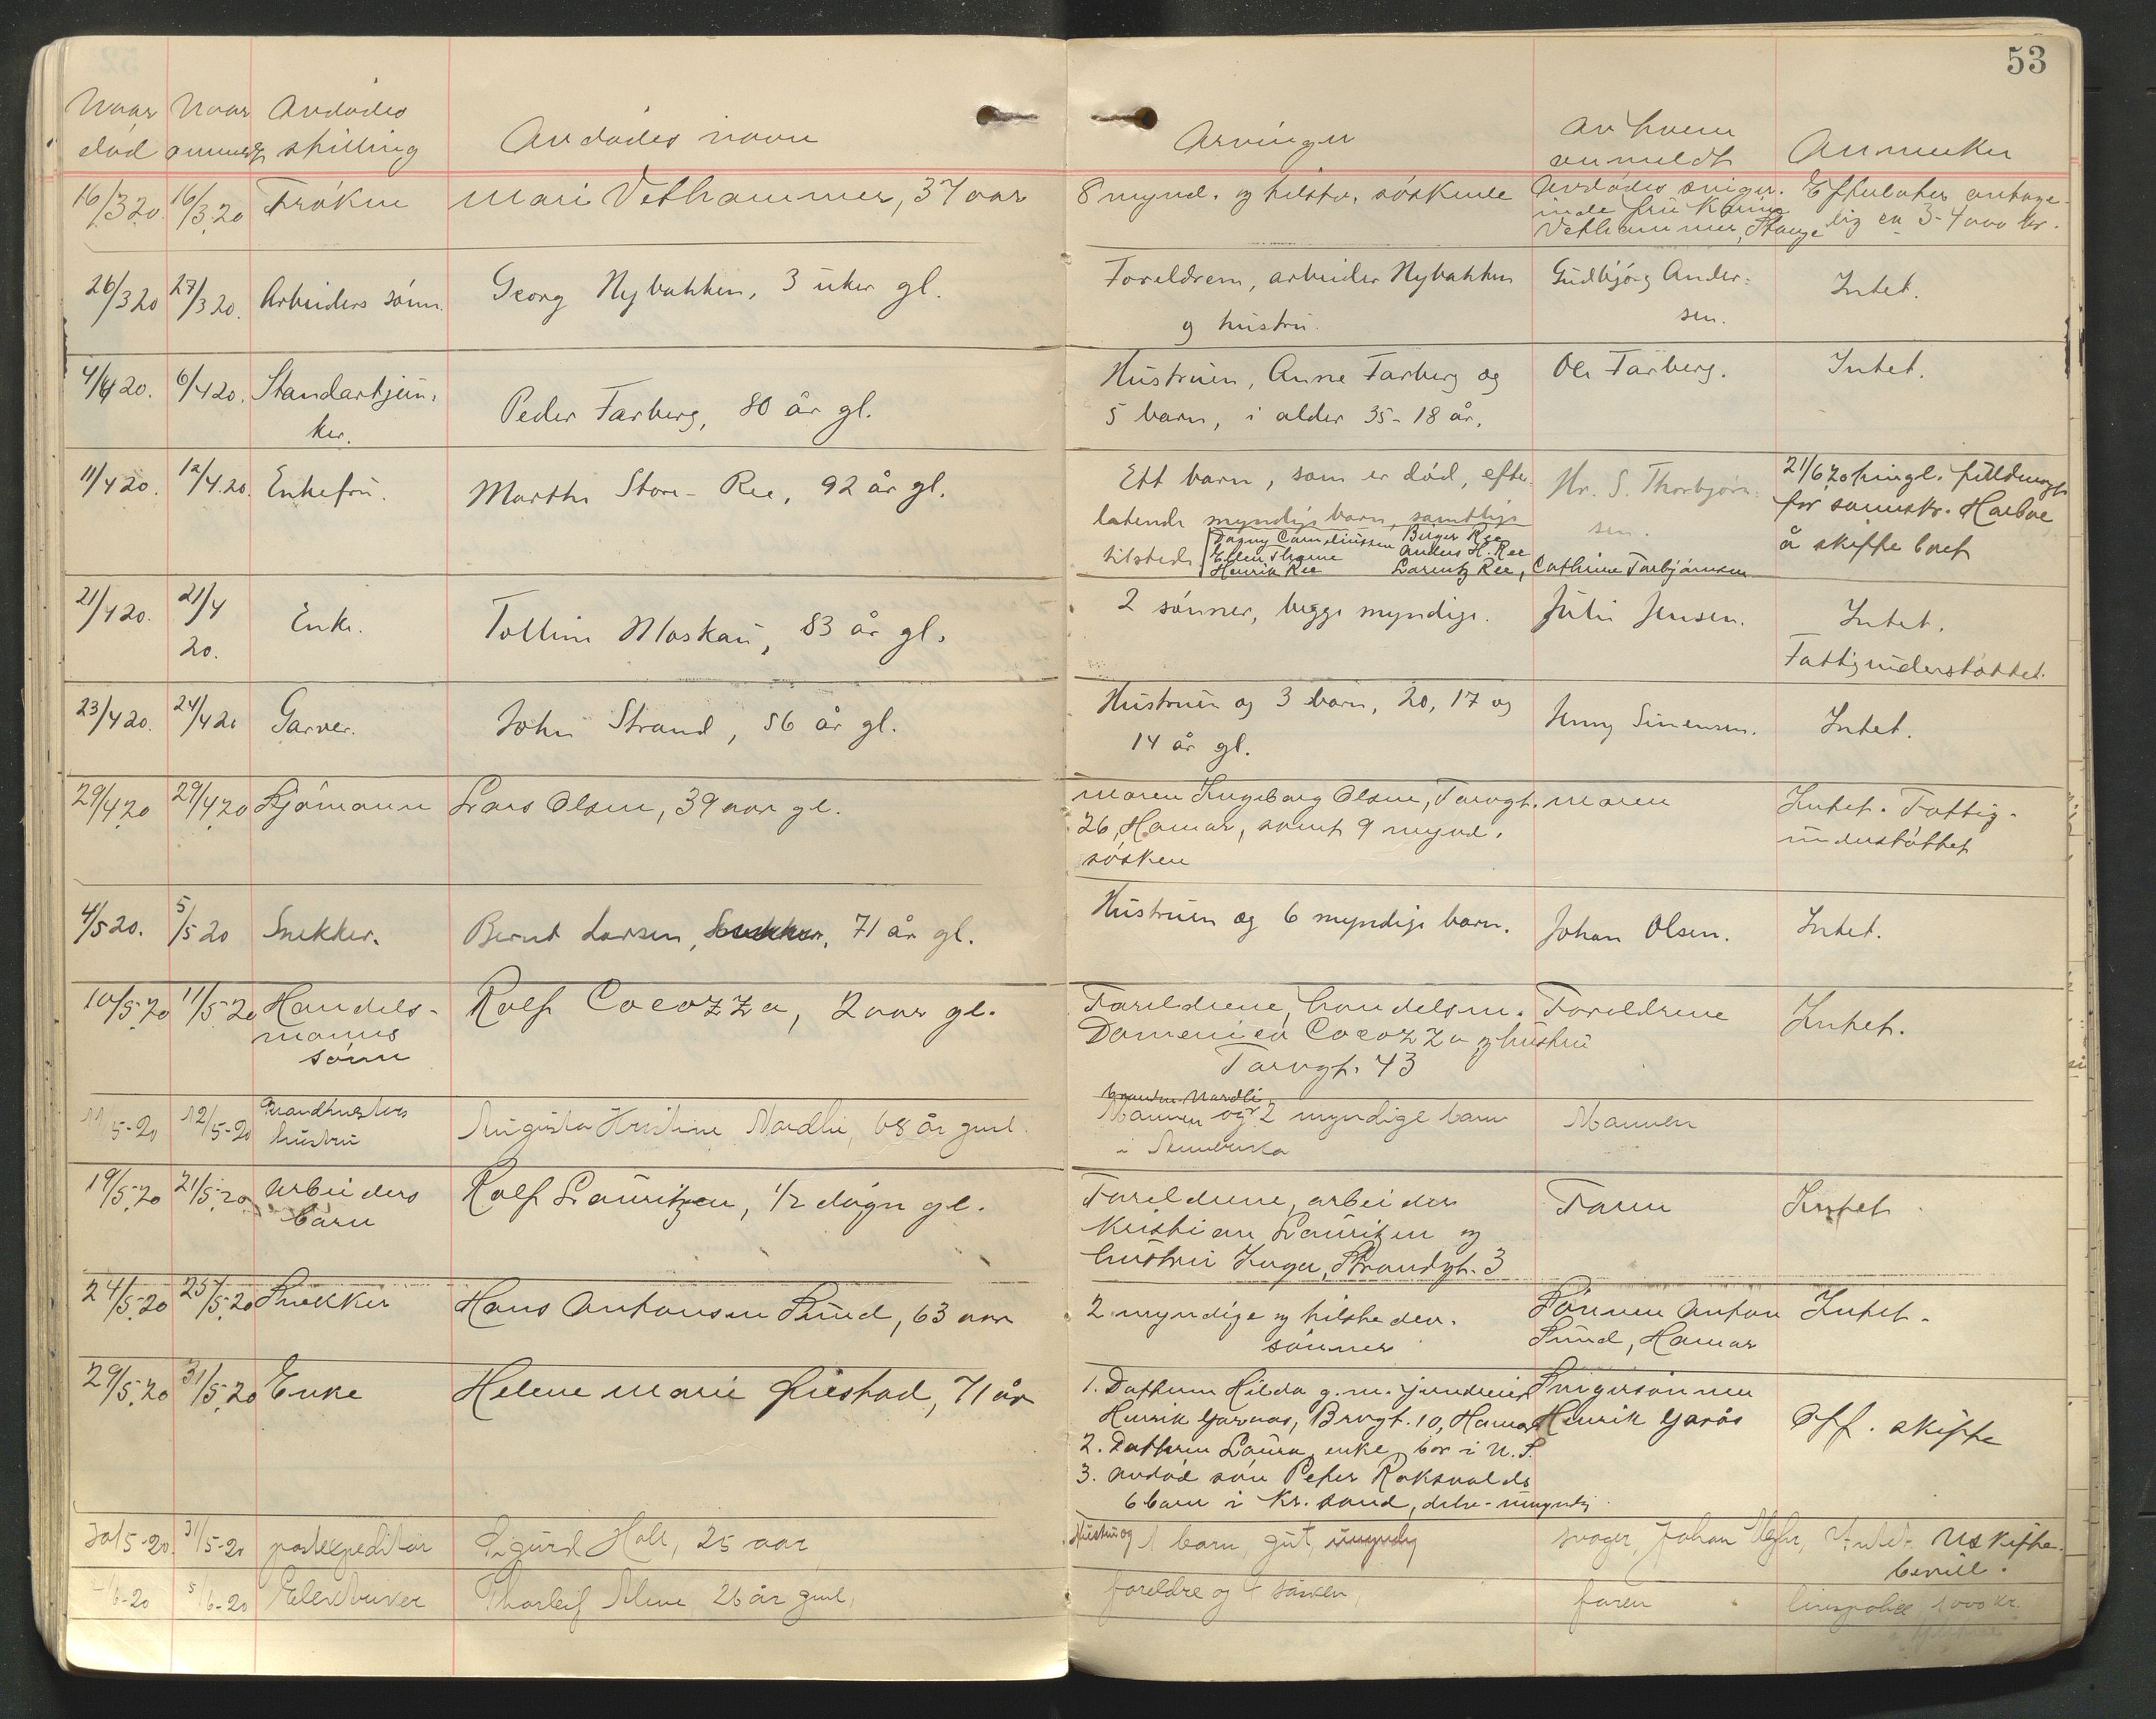 53
Naar død
Naar anmeldt
Avdødes stilling
Avdødes navn
Arvinger
Av hvem anmeldt
Anmerkn
16/3.20. 16/3.20 Frøken Mari Vethammer, 37 aar
8 mynd. og tilsted. søskende
Avdødes sviger-
inde fru Karin
Vethammer, Stange
Efterlater antage-
lig ca 3-4000 kr.
26/3 20 27/3 20. Arbeiders sønn. Georg Nybakken, 3 uker gl.
Foreldrene, arbeider Nybakken
og hustru.
Gudbjørg Ander-
sen.
Intet.
4/4 20. 6/4 20. Standartjun-
ker.
Peder Farberg, 80 år gl.
Hustruen, Anne Farberg og
5 barn, i alder 35-18 år.
Ole Farberg.
Intet.
11/4 20. 12/4.20. Enkefru. Marthe Store-Ree, 92 år gl.
Ett barn, som er død, efter-
latende myndige barn, samtlige
tilstede
Dagny Corneliussen Birger Ree
Ellen Thorne Anders H. Ree
Henrik Ree Lorentz Ree, Cathrine Torbjørnsen
Hr. S. Thorbjørn-
sen.
21/6 20 tingl. fuldmagt
for sorenskr. Harboe
å skifte boet
21/4 20. 21/4
20.
Enke. Tolline Moskau, 83 år gl.
2 sønner, begge myndige.
Julie Jensen.
Intet.
Fattigunderstøttet.
23/4 20. 24/4 20 Garver. John Strand, 56 år gl.
Hustruen og 3 barn, 20, 17 og
14 år gl.
Jenny Simensen.
Intet.
29/4.20 29/4.20 Sjømann Lars Olsen, 39 aar gl.
Moren Ingeborg Olsen, Torvgt.
26, Hamar, samt 9 mynd.
søsken
Moren
Intet. Fattig-
understøttet
4/5 20. 5/5 20 Snekker. Bernt Larsen, Snekker, 71 år gl.
Hustruen og 6 myndige barn.
Johan Olsen.
Intet.
10/5.20 11/5.20 Handels-
manns
sønn
Rolf Cocozza, 2 aar gl.
Foreldrene, handelsm.
Domenico Cocozza og hustru
Torvgt. 43
Foreldrene
Intet.
11/5-20 12/5-20 Brandmesters
hustru
Augusta Kristine Nordli, 68 år gml.
Brandm. Nordli
Mannen og 2 myndige barn
i Amerika
Mannen
19/5.20 21/5.20 Arbeiders
barn
Rolf Lauritzen, 1/2 døgn gl.
Foreldrene, arbeider
Kristian Lauritzen og
hustru Inga, Strandgt. 3
Faren
Intet
24/5.20 25/5.20 Snekker Hans Antonsen Sund, 63 aar
2 myndige og tilstedev.
sønner
Sønnen Anton
Sund, Hamar
Intet.
29/5.20 31/5.20 Enke Helene Marie Qvestad, 71 år
1. Datteren Hilda g.m. gjendreier
Henrik Garaas, Brvgt. 10, Hamar
2. Datteren Laura, enke, bor i U.S.
3. avdød søn Peter Roksvolds
6 barn i Kr.sand, delvis umyndig
Svigersønnen
Henrik Garås
Off. skifte
30/5-20. 31/5-20 postexpeditør Sigurd Holt, 25 aar
Hustru og 1 barn, gut, umyndig
svoger, Johan
Intet. Uskifte-
bevill.
/6-20 5/6-20 Elektriker Thorleif 26 år gml.
foreldre og 4 søsken,
faren
livspolice 1000 kr.